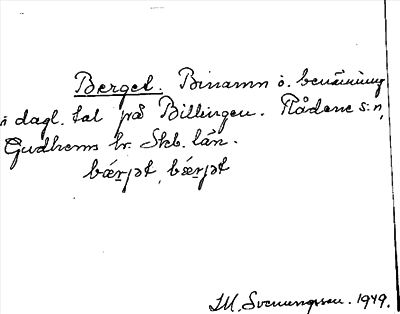 Berget. Binamn o. benämning
i dagl. tal på Billingen. Flådene s:n,
Gudhems hr. Skb. län.
bǽrjət, bǽrjət
I.M. Svenungsson. 1949.